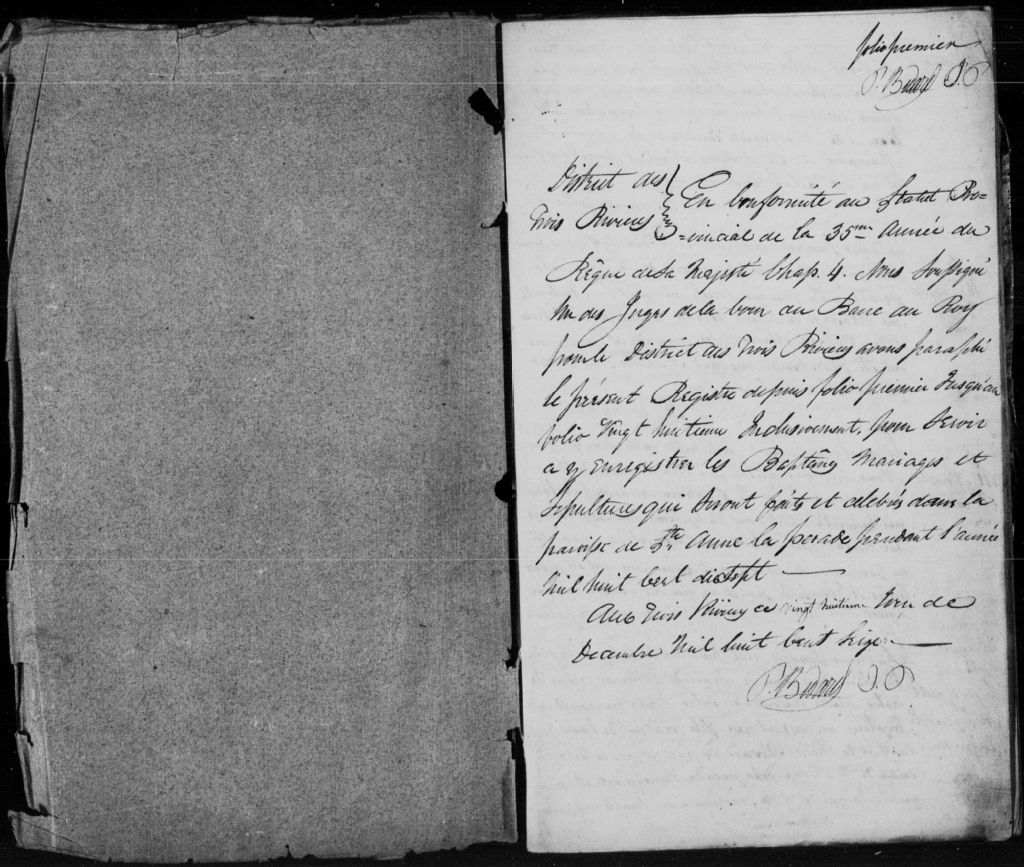 folio premier
P. Bedard J.P
District des
Trois Rivieres
En Conformité au Statut Pro=
=vincial de la 35me Année du
Règne de Sa Majesté Chap. 4. Nous Soussigné
Un des Juges de la Cour du Banc du Roy
pour le District des Trois Rivieres avons paraphé
le présent Registre depuis folio premier Jusqu'au
folio Vingt huitieme Inclusivement, pour Servir
a y enregistrer les Baptêmes Mariages et
Sepultures qui Seront faits et celebrés dans la
paroisse de Ste Anne la perade pendant l'année
Mil huit Cent dixsept
Aux Trois Rivieres ce vingt huitieme Jour de
Decembre Mil huit Cent Seize
P. Bedard J.P